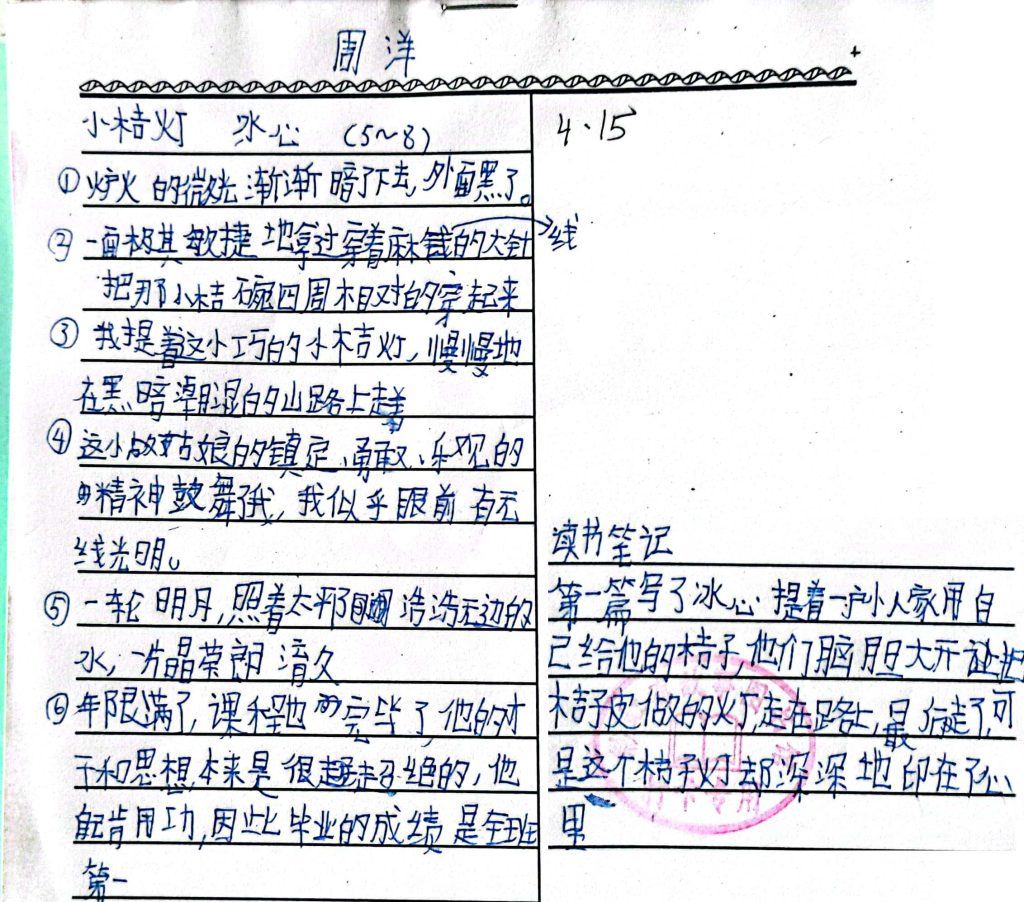 周洋
小桔灯 冰心 (5~8)
①炉火的微光渐渐暗了下去,外面黑了。
②一面极其敏捷地拿过穿着麻线的大针
把那小桔碗四周相对的穿起来
③我提着这小巧的小桔灯,慢慢地
在黑暗潮湿的山路上走着
④这小姑娘的镇定、勇敢、乐观的
精神鼓舞了我,我似乎眼前有无
线光明。
⑤一轮明月,照着太平洋浩浩无边的
水,一片晶莹朗
⑥年限满了,课程也完毕了,他的才
干和思想本来是很超绝的,他
肯用功,因此毕业的成绩是全班
第一
4.15
线
读书笔记
第一篇写了冰心提着一户小人家用自
己给他的桔子他们脑胆大开
桔子皮做的火灯走在路上,最了走了,可
是这个桔子灯却深深地印在了心
里